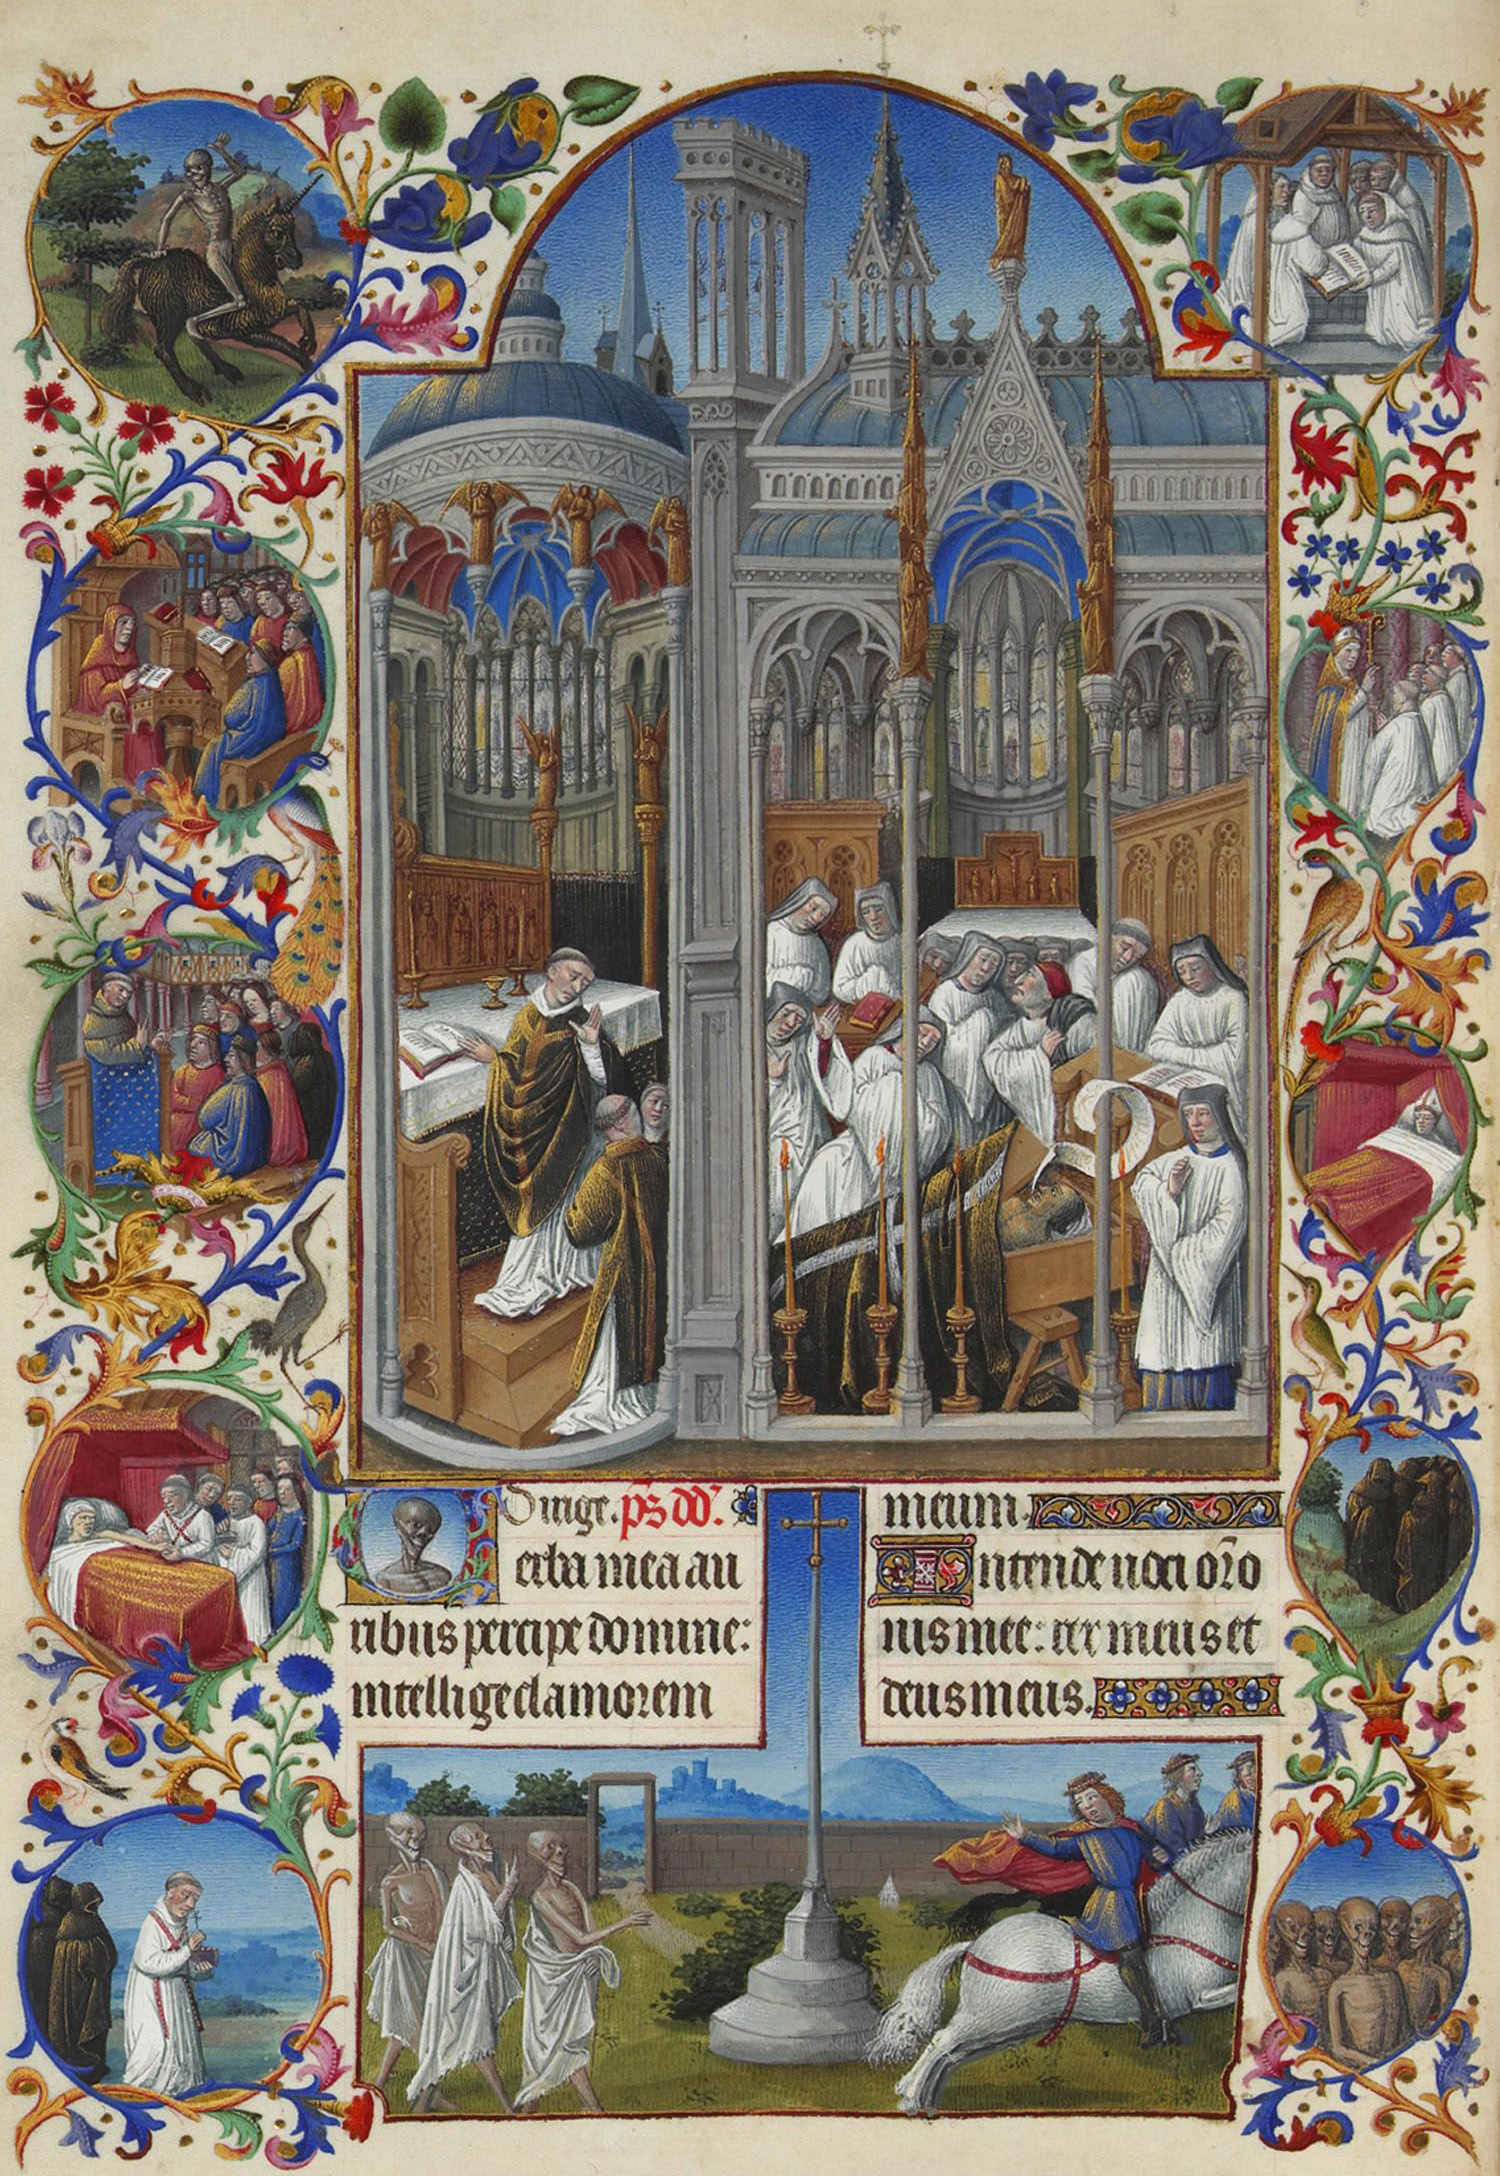 Dirige. ps dd'.
Verba mea au
ribus percipe domine:
intellige clamorem
meum.
Intende voci oro
nis mee: rex meus et
deus meus.